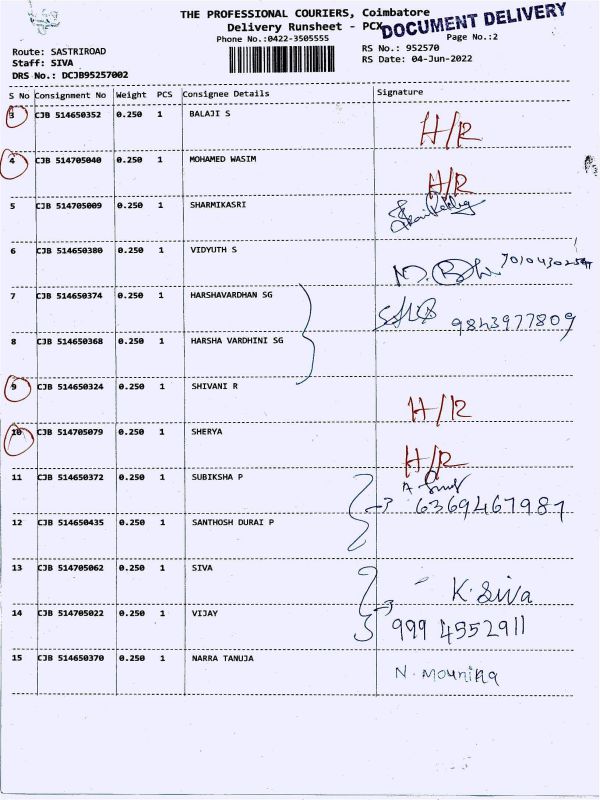 THE PROFESSIONAL COURIERS, Coimbatore
Delivery Runsheet - PCX
DOCUMENT DELIVERY
Phone No.:0422-3505555
Page No.:2
Route: SASTRIROAD
RS No.: 952570
Staff: SIVA
RS Date: 04-Jun-2022
DRS No.: DCJB95257002
S No Consignment No Weight PCS Consignee Details Signature
3 CJB 514650352 0.250 1 BALAJI S H/R
4 CJB 514705040 0.250 1 MOHAMED WASIM H/R
5 CJB 514705009 0.250 1 SHARMIKASRI
6 CJB 514650380 0.250 1 VIDYUTH S
7 CJB 514650374 0.250 1 HARSHAVARDHAN SG 9843977809
8 CJB 514650368 0.250 1 HARSHA VARDHINI SG
9 CJB 514650324 0.250 1 SHIVANI R H/R
10 CJB 514705079 0.250 1 SHERYA H/R
11 CJB 514650372 0.250 1 SUBIKSHA P 6369467987
12 CJB 514650435 0.250 1 SANTHOSH DURAI P
13 CJB 514705062 0.250 1 SIVA K. Siva
14 CJB 514705022 0.250 1 VIJAY 999 4552911
15 CJB 514650370 0.250 1 NARRA TANUJA N. Mounika